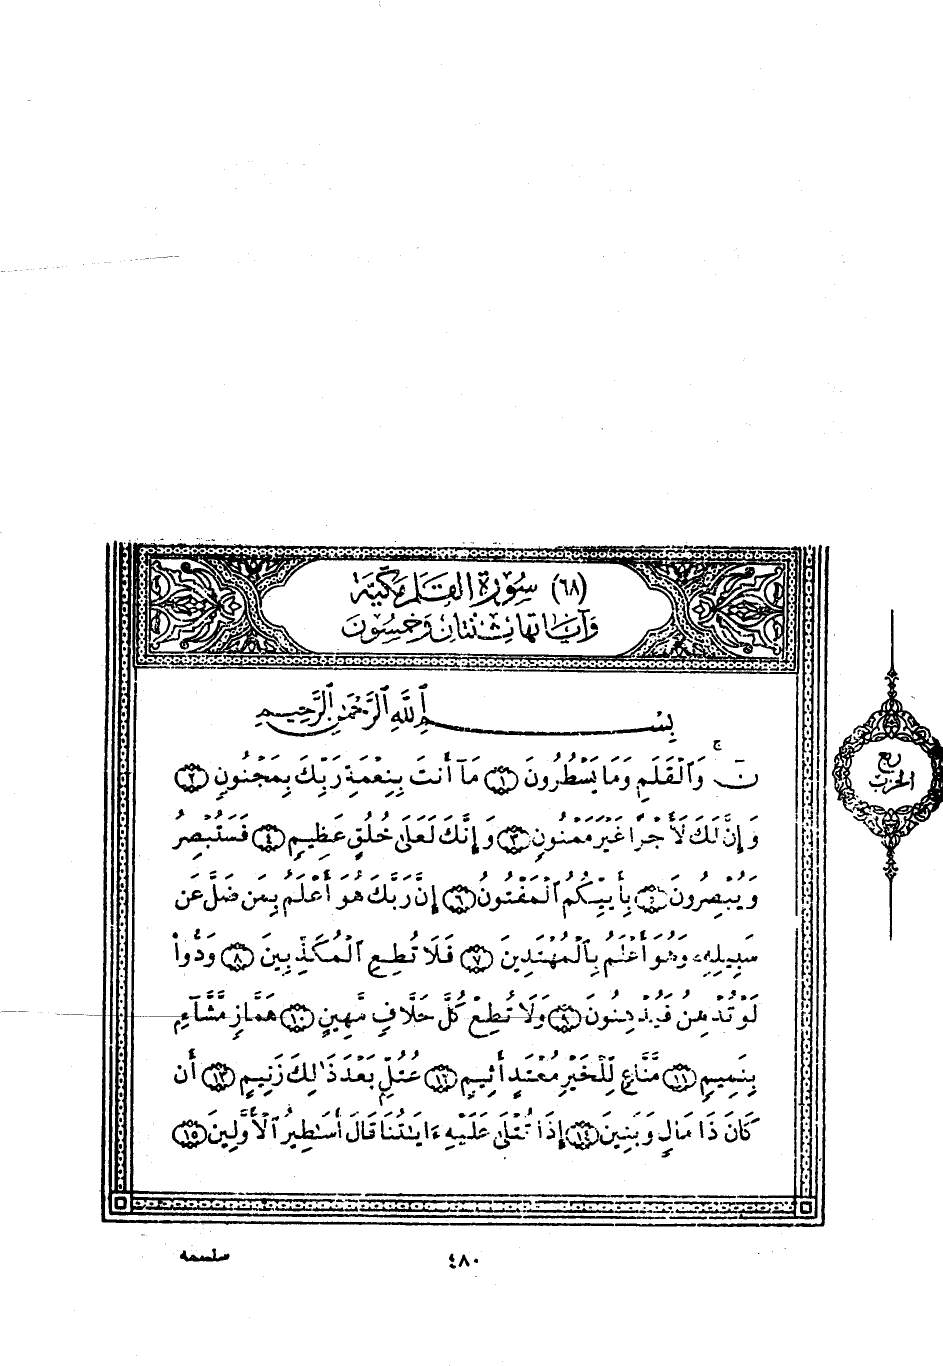 (٦٨) سُورَةُ القَلَمِ مَكِّيَّة
وَآيَاتُهَا ثِنْتَانِ وَخَمْسُونَ
بِسْمِ اللَّهِ الرَّحْمَٰنِ الرَّحِيمِ
نٓ ۚ وَٱلْقَلَمِ وَمَا يَسْطُرُونَ ﴿١﴾ مَآ أَنتَ بِنِعْمَةِ رَبِّكَ بِمَجْنُونٍ ﴿٢﴾
وَإِنَّ لَكَ لَأَجْرًا غَيْرَ مَمْنُونٍ ﴿٣﴾ وَإِنَّكَ لَعَلَىٰ خُلُقٍ عَظِيمٍ ﴿٤﴾ فَسَتُبْصِرُ
وَيُبْصِرُونَ ﴿٥﴾ بِأَييِّكُمُ ٱلْمَفْتُونُ ﴿٦﴾ إِنَّ رَبَّكَ هُوَ أَعْلَمُ بِمَن ضَلَّ عَن
سَبِيلِهِۦ وَهُوَ أَعْلَمُ بِٱلْمُهْتَدِينَ ﴿٧﴾ فَلَا تُطِعِ ٱلْمُكَذِّبِينَ ﴿٨﴾ وَدُّوا۟
لَوْ تُدْهِنُ فَيُدْهِنُونَ ﴿٩﴾ وَلَا تُطِعْ كُلَّ حَلَّافٍ مَّهِينٍ ﴿١٠﴾ هَمَّازٍ مَّشَّآءٍ
بِنَمِيمٍ ﴿١١﴾ مَّنَّاعٍ لِّلْخَيْرِ مُعْتَدٍ أَثِيمٍ ﴿١٢﴾ عُتُلٍّۭ بَعْدَ ذَٰلِكَ زَنِيمٍ ﴿١٣﴾ أَن
كَانَ ذَا مَالٍ وَبَنِينَ ﴿١٤﴾ إِذَا تُتْلَىٰ عَلَيْهِ ءَايَٰتُنَا قَالَ أَسَٰطِيرُ ٱلْأَوَّلِينَ ﴿١٥﴾
ربع
الحزب
سنسمه
٤٨٠